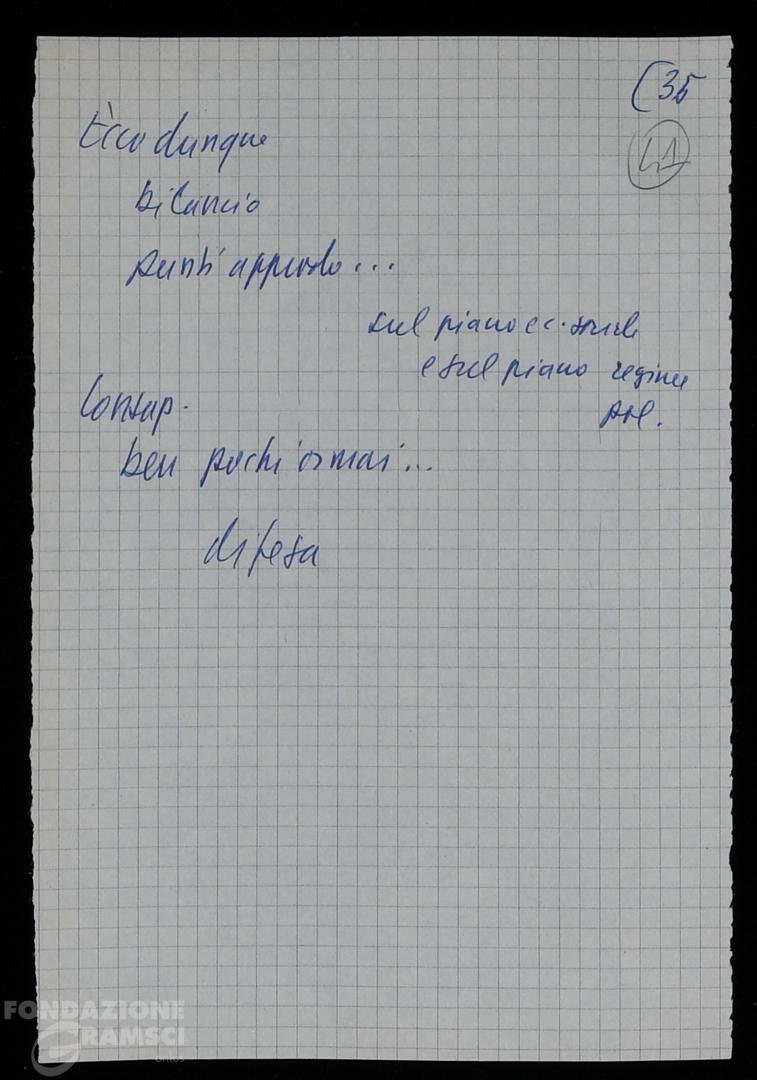 (35
41
Ecco dunque
bilancio
punti approdo...
sul piano ec. sociale
e sul piano regime
pol.
Consap.
ben pochi ormai...
difesa
FONDAZIONE
GRAMSCI
onlus